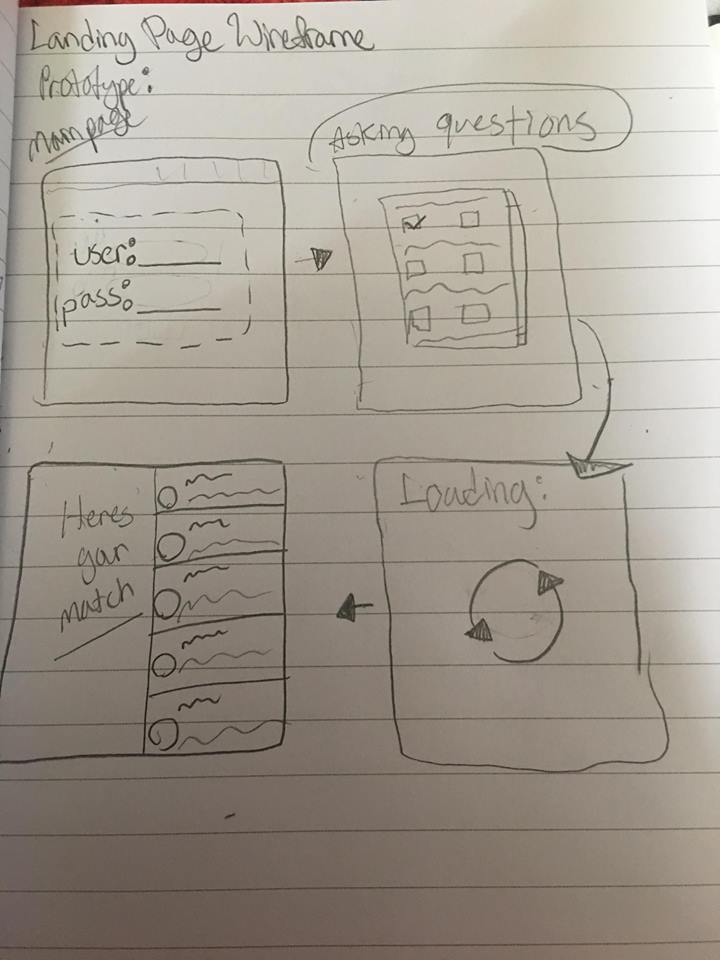 Landing Page Wireframe
Prototype:
main page
Asking questions
user:
pass:
Loading:
Heres
your
match